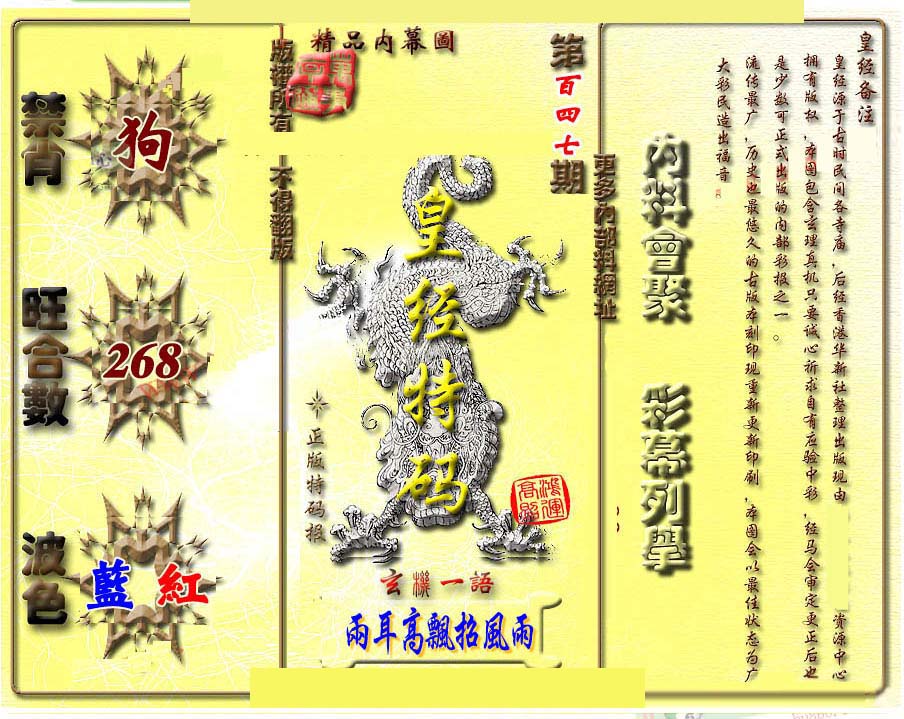 精品内幕圖
版權所有
不得翻版
第百四七期
更多內部料網址
禁肖
狗
旺合數
268
波色
藍 紅
皇经特码
正版特码报
鴻運
高照
玄機一語
兩耳高飄招風雨
内料會聚
彩幕列舉
皇经备注
皇经源于古时民间各寺庙，后经香港华新社整理出版现由 资源中心
拥有版权，本图包含玄理真机只要诚心祈求自有应验中彩，经马会审定更正后也
是少数可正式出版的内部彩报之一。
流传最广，历史也最悠久的古版本刻印现重新更新印刷，本图会以最佳状态为广
大彩民造出福音